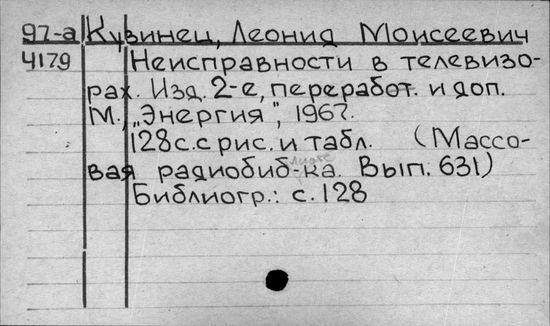 97-а Кувинец, Леонид Моисеевич
4179 Неисправности в телевизо-
рах. Изд. 2-е, переработ. и доп.
М., „Энергия", 1967.
128с. с рис. и табл. (Массо-
вая радиобиб-ка. Вып. 631)
Библиогр.: с. 128